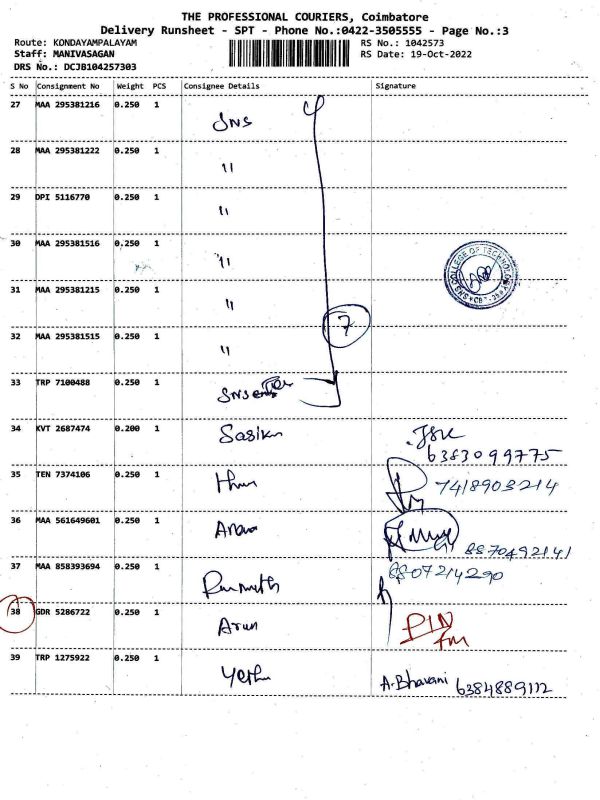 THE PROFESSIONAL COURIERS, Coimbatore
Delivery Runsheet - SPT - Phone No.:0422-3505555 - Page No.:3
Route: KONDAYAMPALAYAM RS No.: 1042573
Staff: MANIVASAGAN RS Date: 19-Oct-2022
DRS No.: DCJB104257303
S No Consignment No Weight PCS Consignee Details Signature
27 MAA 295381216 0.250 1 SNS
28 MAA 295381222 0.250 1 "
29 DPI 5116770 0.250 1 "
30 MAA 295381516 0.250 1 "
31 MAA 295381215 0.250 1 "
COLLEGE OF TECHNOLOGY
32 MAA 295381515 0.250 1 "
7
33 TRP 7100488 0.250 1 SNS
34 KVT 2687474 0.200 1 Sasikn
6383099775
35 TEN 7374106 0.250 1
7418903214
36 MAA 561649601 0.250 1
8870492141
37 MAA 858393694 0.250 1
8807214290
38 GDR 5286722 0.250 1 Arun
39 TRP 1275922 0.250 1 A.Bhavani 6384889112